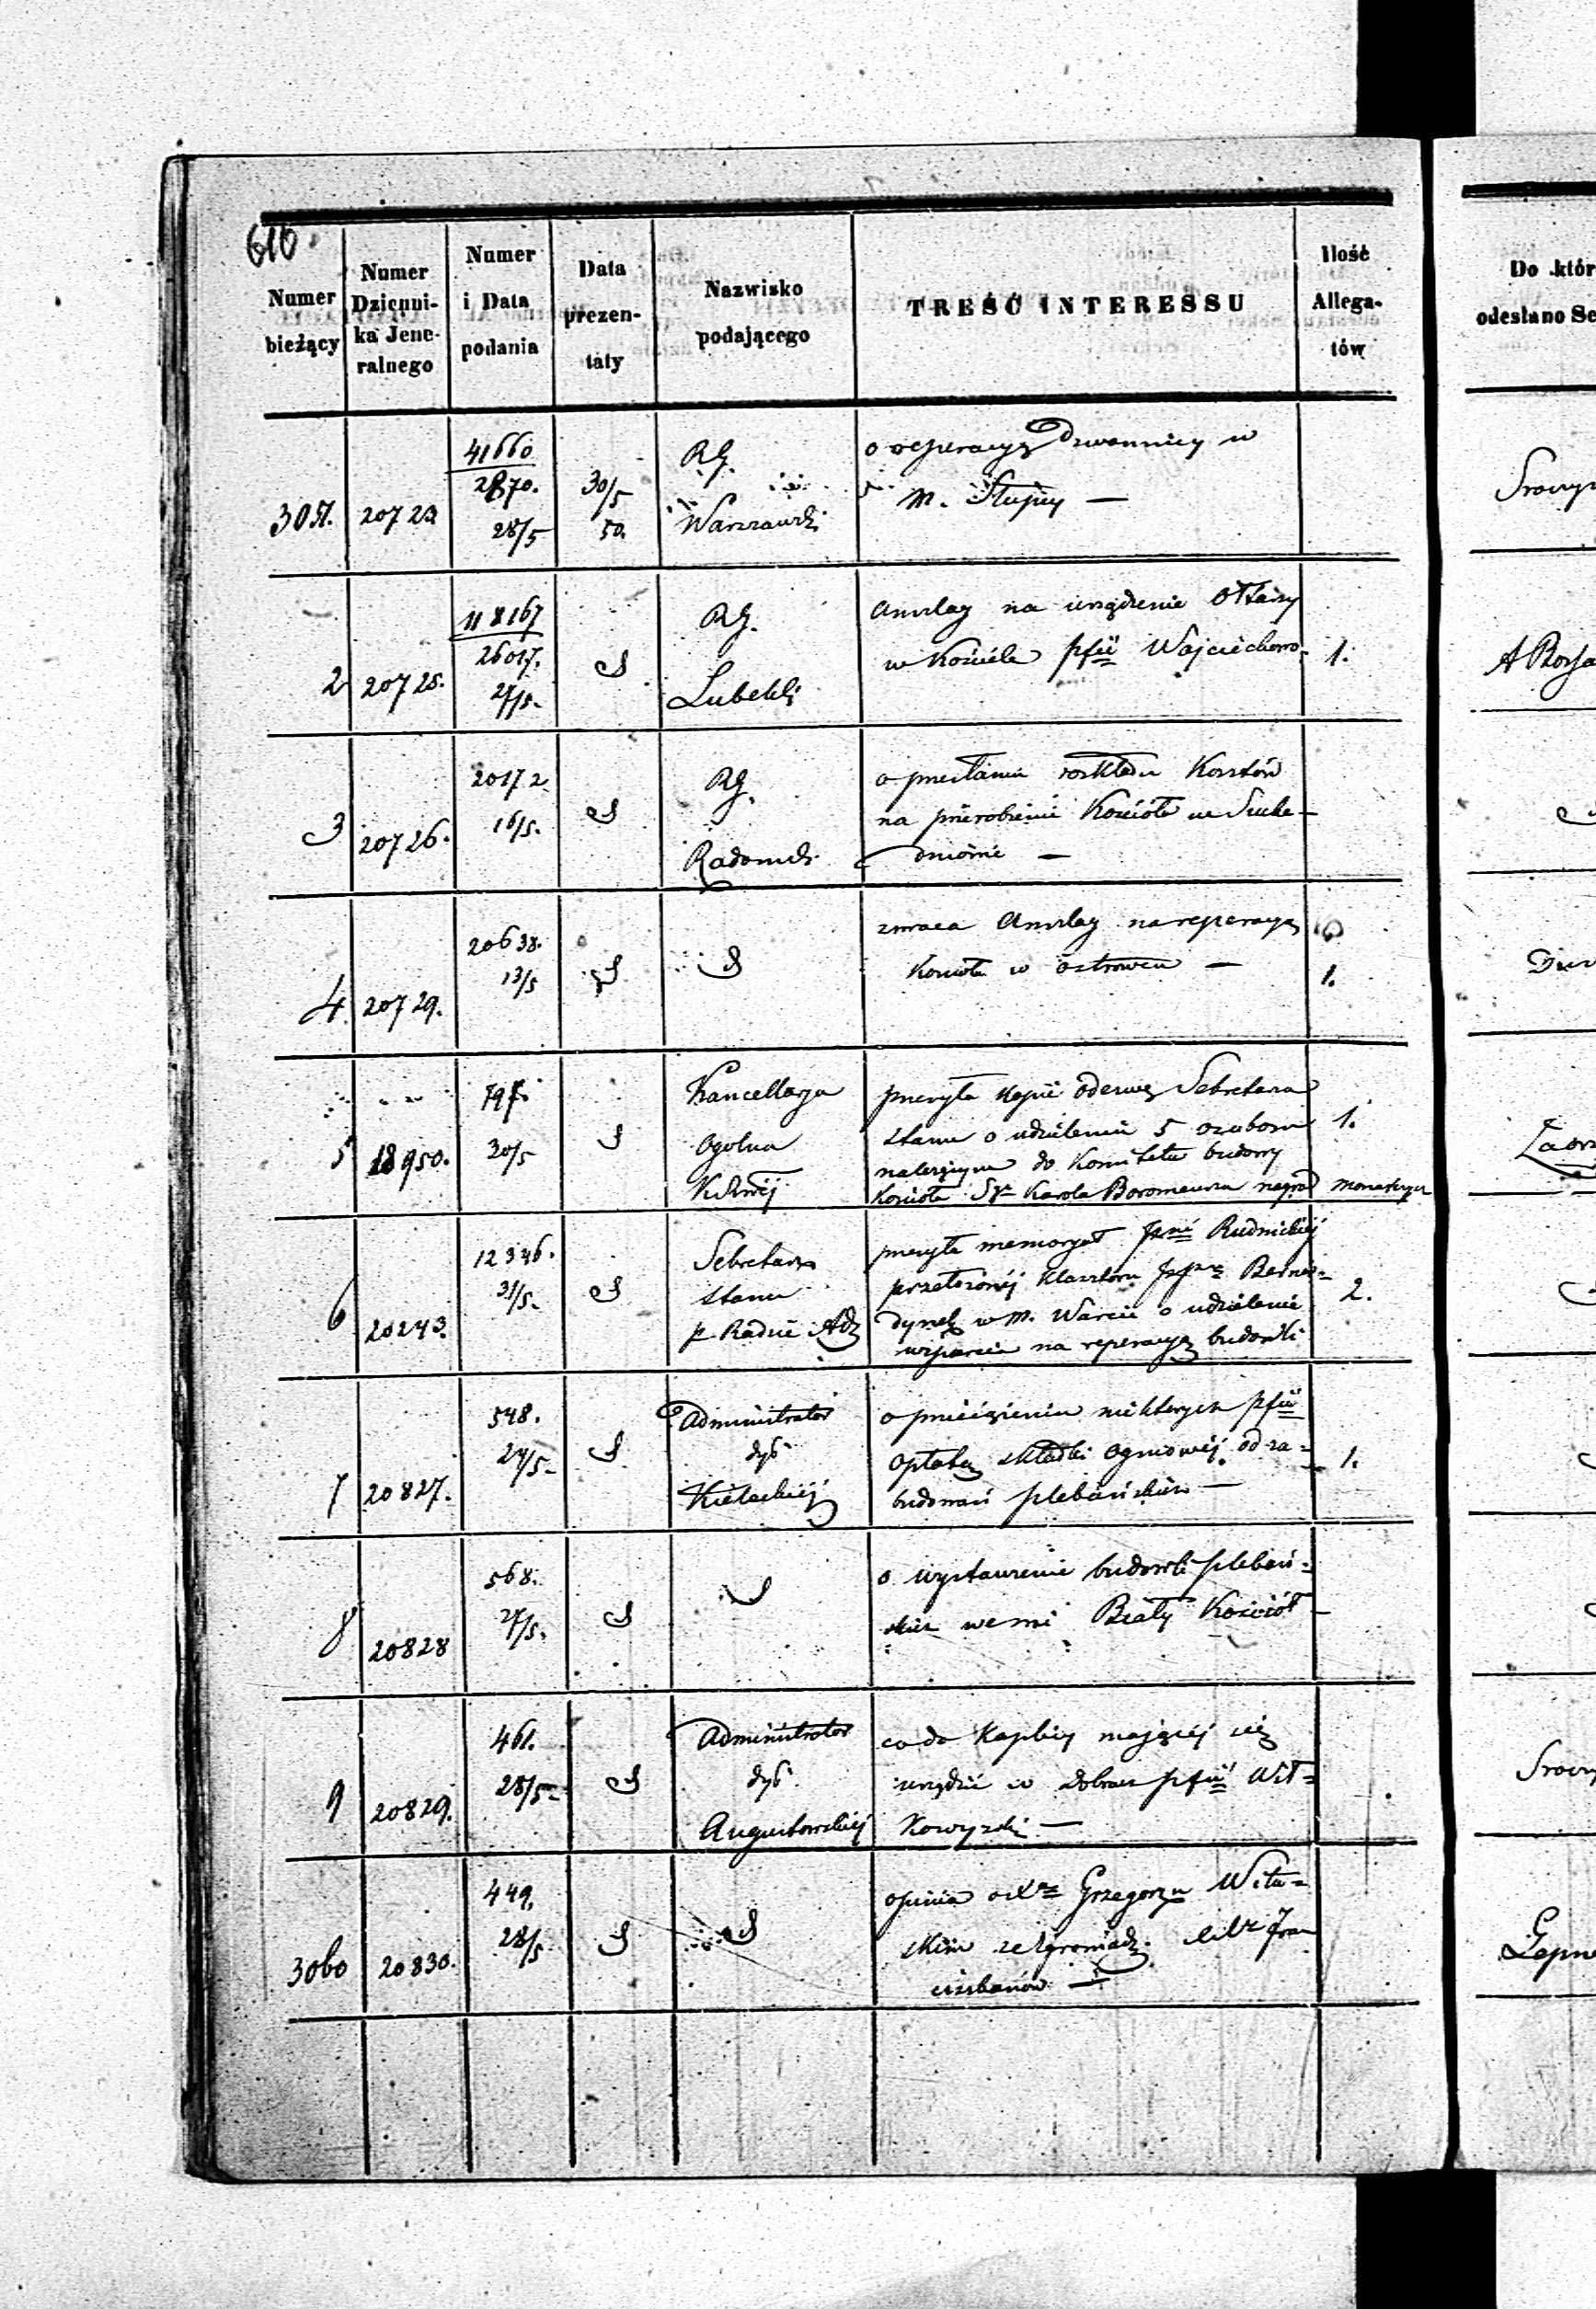 616.
Numer bieżący
Numer Dzienni- ka Jene- ralnego
Numer i Data podania
Data prezen- taty
Nazwisko podającego
TREŚĆ INTERESSU
Ilość Allega- tów
Do któr
odesłano Se
3051. 20723
41660
2870.
28/5
30/5
50.
RG.
Warszawski
o reperacyą Dzwonnicy w
m. Słupcy —
2 20725.
118167
26017.
27/5.
RG.
Lubelski
Anszlag na urządzenie Ołtarzy
w Kościele pfii Wojciechow-
1.
3 20726.
20172
16/5.
RG.
Radomsk.
o przesłanie rozkładu Kosztów
na przerobienie Kościoła w Suche-
dniowie —
4. 20729.
20638.
13/5
zwraca Anszlag na reperacyą
Kościoła w Ostrowcu —
1.
5 18950.
797.
30/5
Kancellarya
Ogolna
przesyła kopię odezwy Sekretarza
Stanu o udzieleniu 5 osobom
należącym do Komitetu budowy
Kościoła Sgo Karola Boromeusza nagród
1.
6 20243.
12346.
31/5.
Sekretarz
Stanu
p. Radzie Adm
przesyła memoryał Rudnickiej
przełożonej Klasztoru Bernar=
dynek w M. Warcie o udzielenie
wsparcia na reperacyą budowli
2.
7 20827.
548.
27/5.
Administrator
dyc.
Kieleckiej
o przeciążeniu niektórych pfii
opłatą składki ogniowej od za=
budowań plebańskich —
1.
8 20828
568.
27/5.
o wystawienie budowli plebań=
skich we wsi Biały Kościół
9 20829.
461.
28/5.
Administrator
dyc.
Augustowskiej
co do Kaplicy mającej się
urządzić w dobrach pfii Wił=
Kowyszki —
3060 20830.
449.
28/5
opinia o Grzegorzu Witu=
skim ze Zgromadz. Fran
ciszkanów —